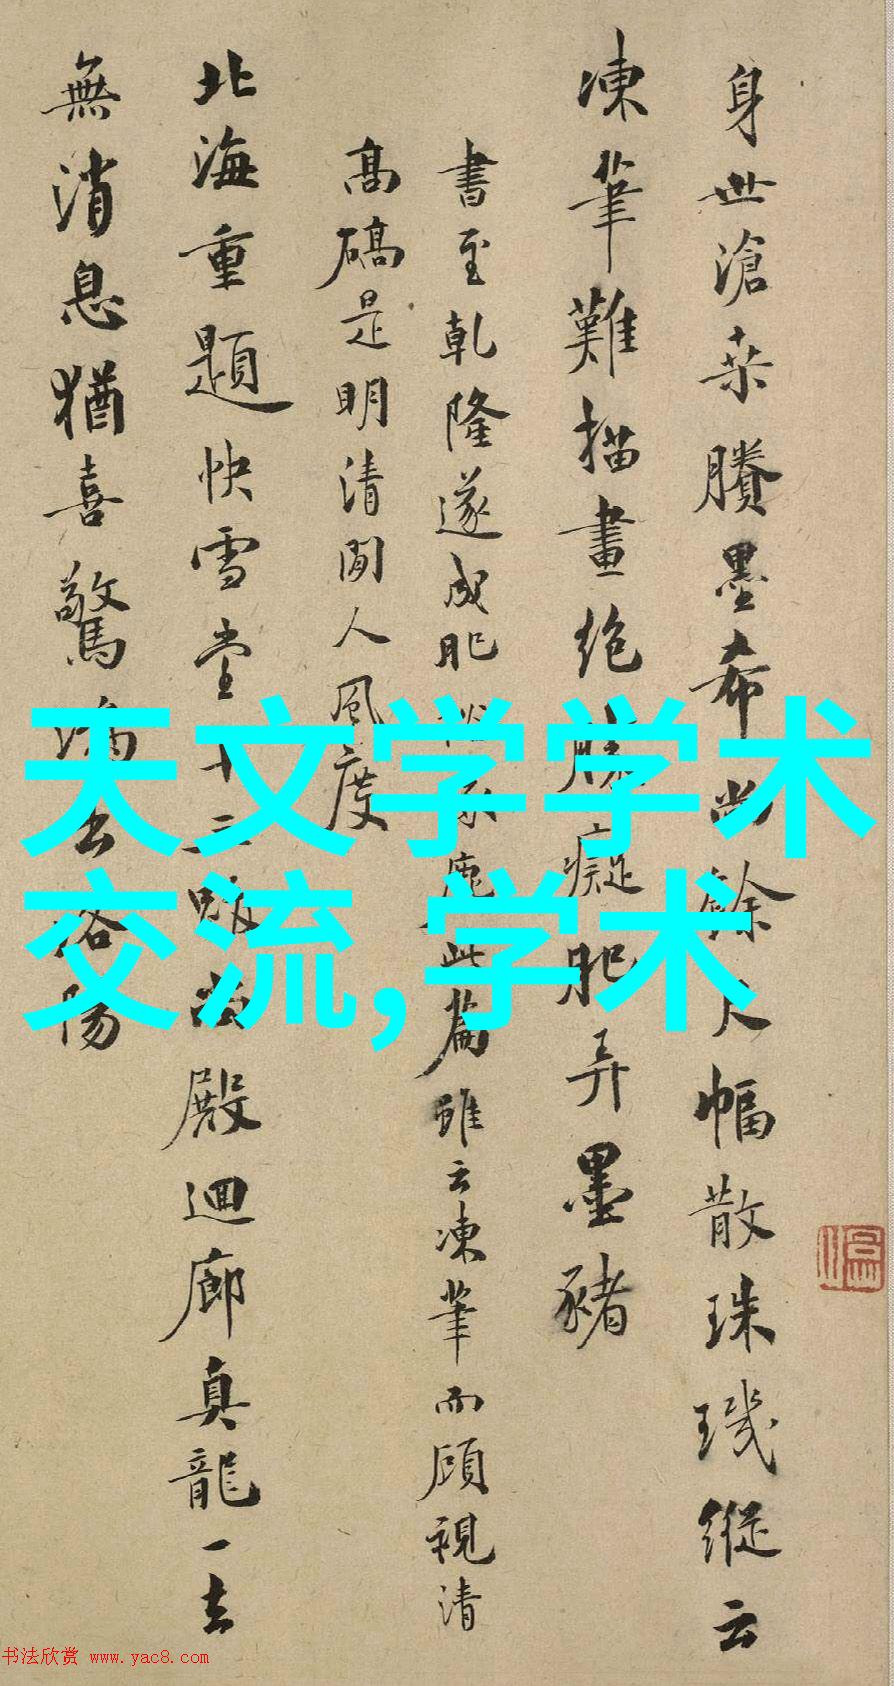 身世滄桑賸墨希尚餘大幅散珠璣縱云
凍筆難描畫絶勝癡肥弄墨豬
書至乾隆遂成肥 此篇雖云凍筆而顧視清
高碻是明清間人風度
北海重題快雪堂 殿迴廊真龍一去
無消息猶喜驚鴻出洛陽
天文学学术
交流,学术
书法欣赏 www.yac8.com